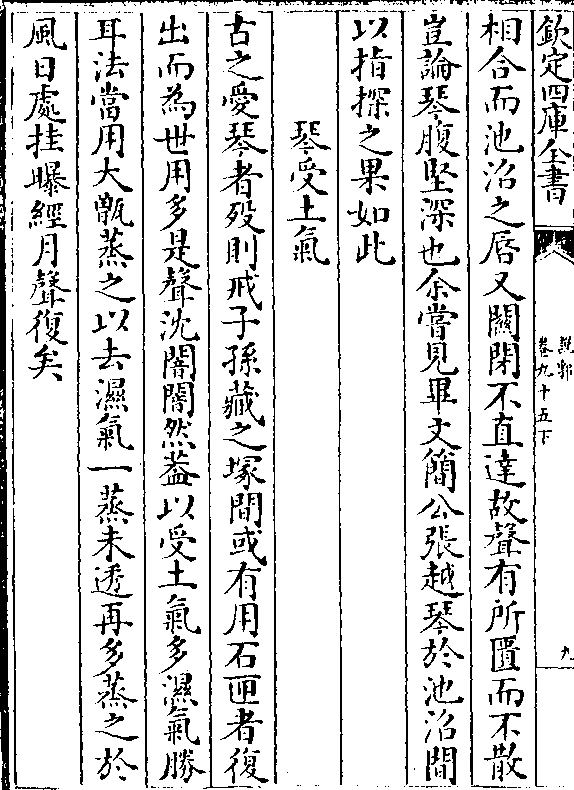 欽定四庫全書
說郛
卷九十五下
九
相合而池沼之唇又關閉不直達故聲有所匿而不散
豈論琴腹堅深也余嘗見畢文簡公張越琴於池沼間
以指探之果如此
琴受土氣
古之愛琴者殁則戒子孫藏之塚間或有用石匣者復
出而為世用多是聲沈闇闇然葢以受土氣多濕氣勝
耳法當用大甑蒸之以去濕氣一蒸未透再多蒸之於
風日處挂曝經月聲復矣